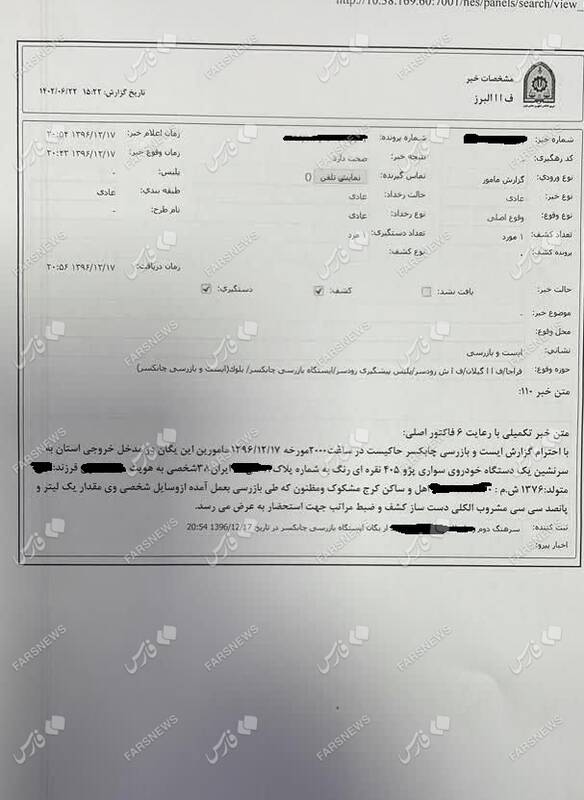 http://10.38.169.60:7001/hes/panels/search/view_
مشخصات خبر
ف ا ا البرز
تاریخ گزارش: ۱۵:۲۲ ۱۴۰۲/۰۶/۲۲
شماره خبر: شماره پرونده: زمان اعلام خبر: ۱۳۹۶/۱۲/۱۷ ۲۰:۵۴
کد رهگیری: نتیجه خبر: صحت دارد زمان وقوع خبر: ۱۳۹۶/۱۲/۱۷ ۲۰:۴۳
نوع ورودی: گزارش مامور تماس گیرنده: نمایش تلفن 0 پلیس: -
نوع خبر: عادی حالت رخداد: عادی طبقه بندی: عادی
نوع وقوع: وقوع اصلی نوع رخداد: عادی نام طرح: -
تعداد کشف: ۱ مورد تعداد دستگیری: ۱ مرد
پرونده کشف: - نوع کشف:
زمان دریافت: ۱۳۹۶/۱۲/۱۷ ۲۰:۵۶
حالت خبر: یافت نشد: کشف: دستگیری:
موضوع خبر: -
محل وقوع:
نشانی: ایست و بازرسی
حوزه وقوع: فراجا/ف ا ا گیلان/ف ا ش رودسر/پلیس پیشگیری رودسر/ایستگاه بازرسی چابکسر/ بلوک(ایست و بازرسی چابکسر)
متن خبر ۱۱۰:
متن خبر تکمیلی با رعایت ۶ فاکتور اصلی:
با احترام گزارش ایست و بازرسی چابکسر حاکیست در ساعت۲۰۰۰مورخه ۱۳۹۶/۱۲/۱۷مامورین این یگان در مدخل خروجی استان به
سرنشین یک دستگاه خودروی سواری پژو ۴۰۵ نقره ای رنگ به شماره پلاک ایران۳۸شخصی به هویت فرزند:
متولد:۱۳۷۶ ش.م : اهل و ساکن کرج مشکوک ومظنون که طی بازرسی بعمل آمده ازوسایل شخصی وی مقدار یک لیتر و
پانصد سی سی مشروب الکلی دست ساز کشف و ضبط مراتب جهت استحضار به عرض می رسد.
ثبت کننده: سرهنگ دوم از یگان ایستگاه بازرسی چابکسر در تاریخ 1396/12/17 20:54
اخبار پیرو:
فارس
FARSNEWS